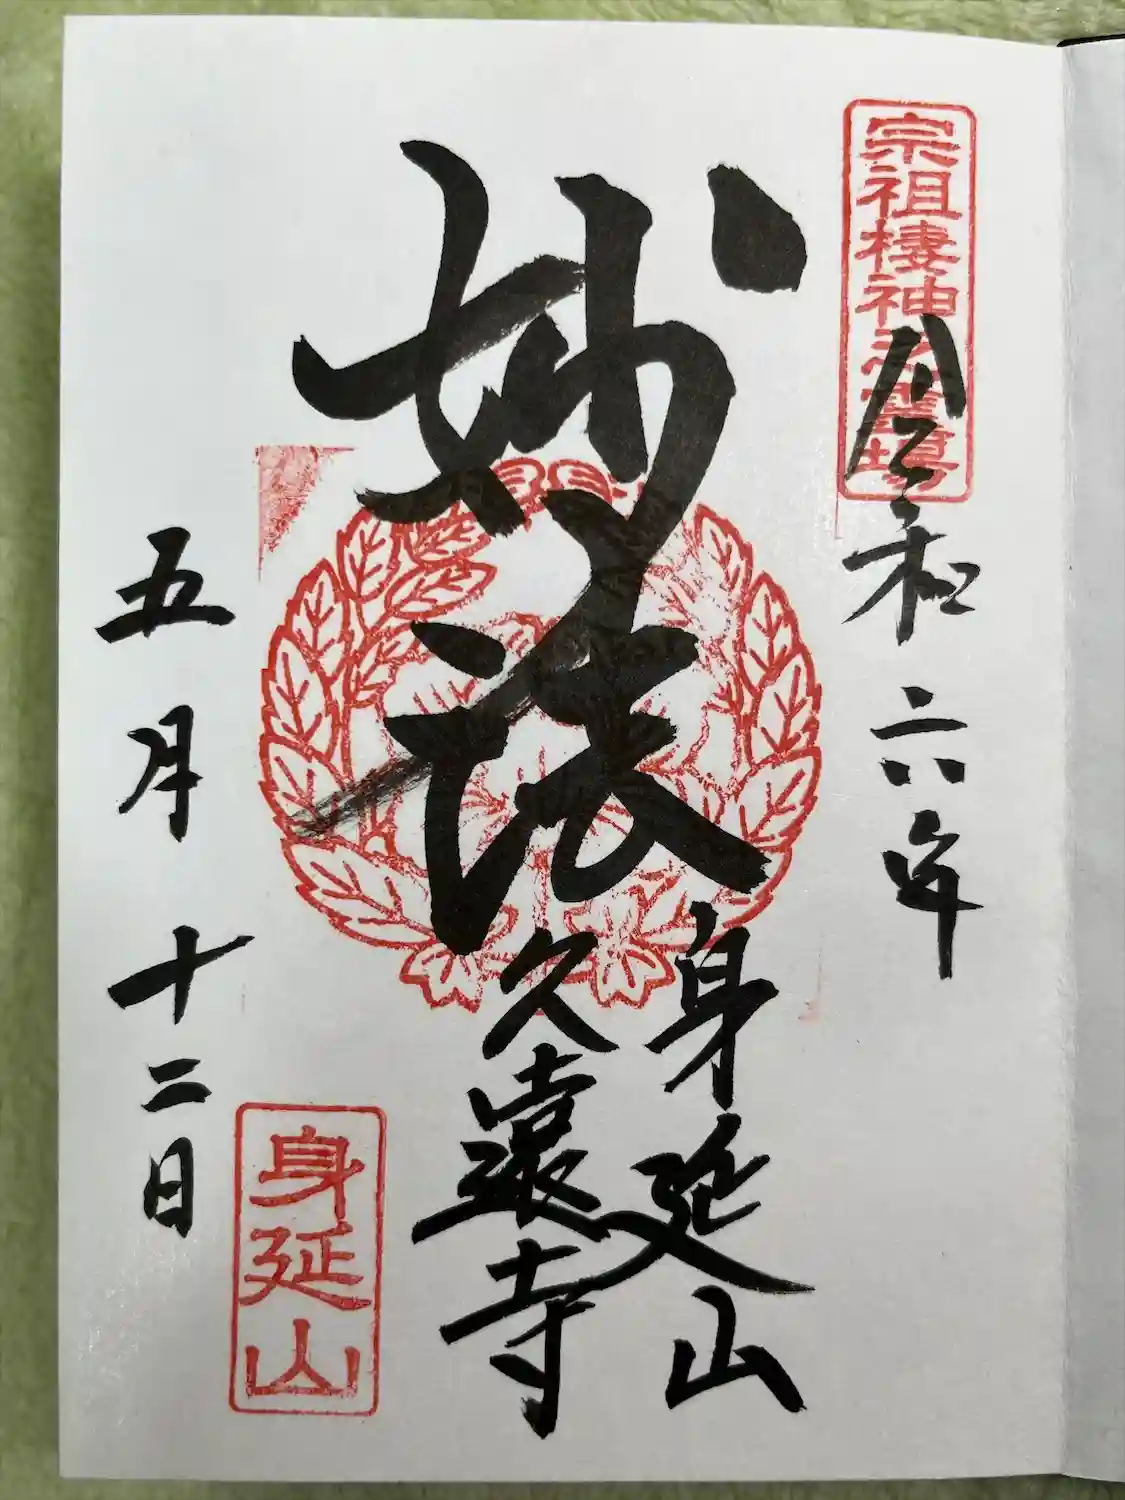 宗祖棲神之霊場
令和六年
妙法
身延山
久遠寺
五月十二日
身延山